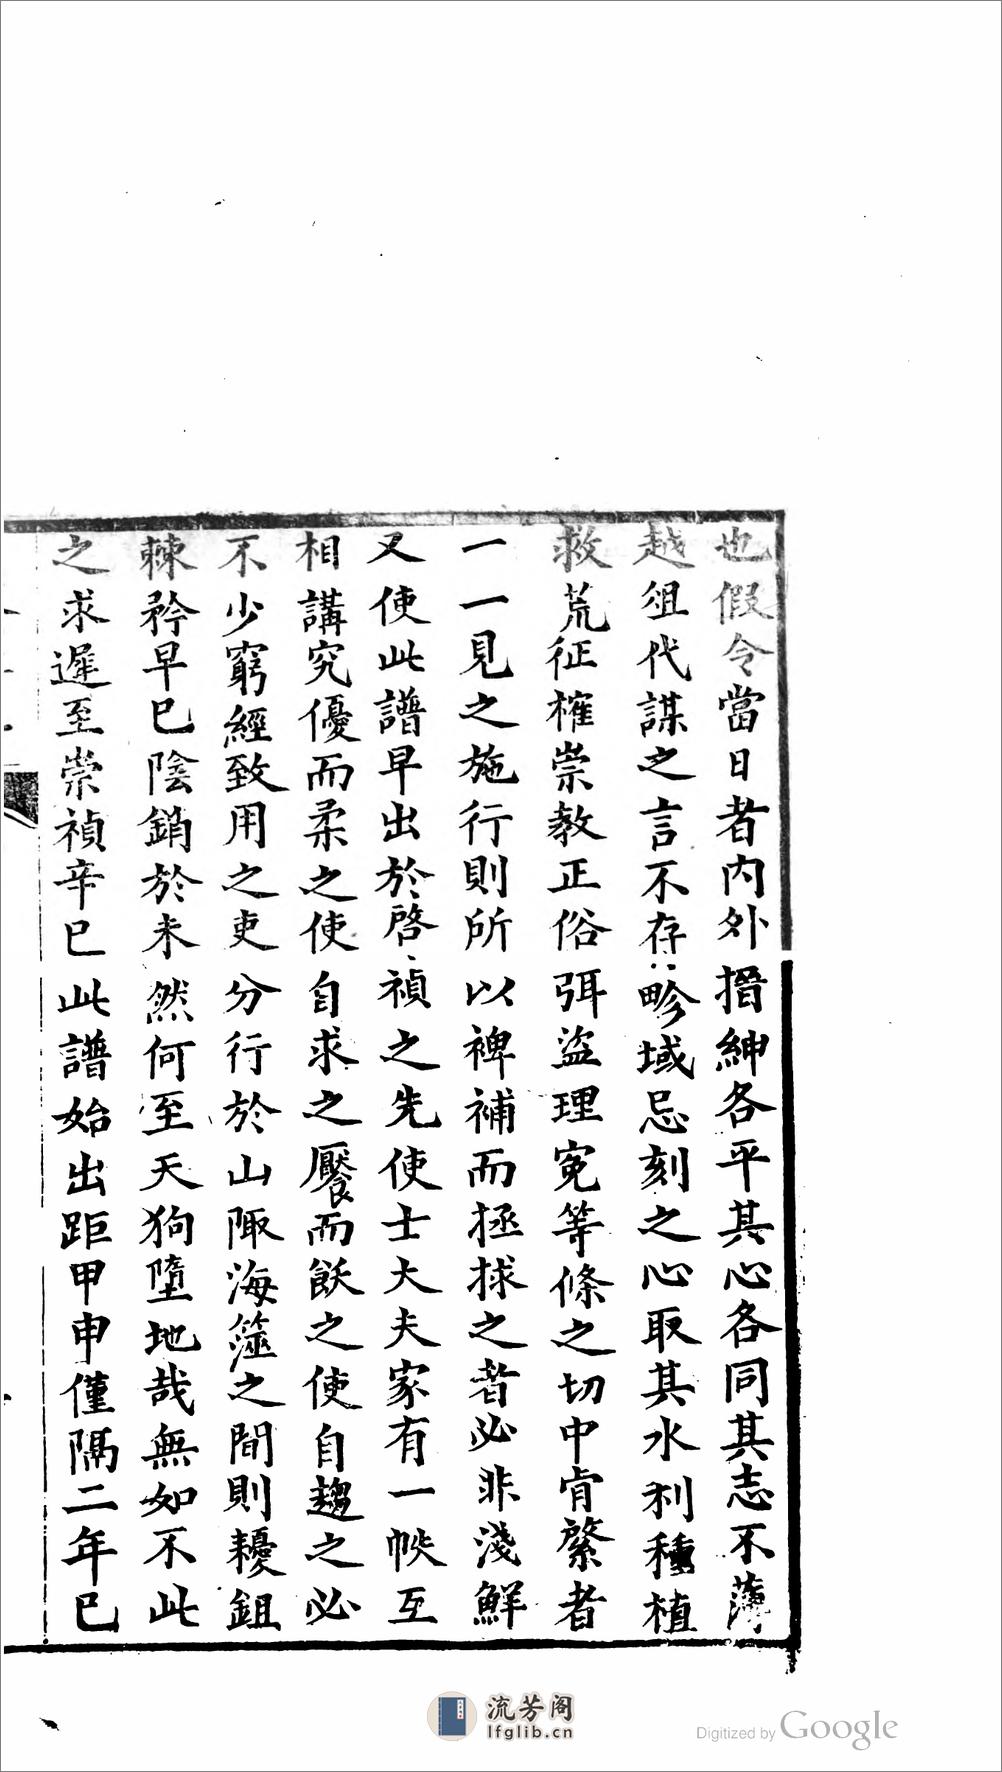 也假令當日者內外搢紳各平其心各同其志不薄
越俎代謀之言不存畛域忌刻之心取其水利種植
救荒征榷崇教正俗弭盜理冤等條之切中肯綮者
一一見之施行則所以裨補而拯捄之者必非淺鮮
又使此譜早出於啓禎之先使士大夫家有一帙互
相講究優而柔之使自求之饜而飫之使自趨之必
不少窮經致用之吏分行於山陬海澨之間則耰鉏
棘矜早巳陰銷於未然何至天狗墮地哉無如不此
之求遲至崇禎辛巳此譜始出距甲申僅隔二年巳
流芳阁
lfglib.cn
Digitized by Google